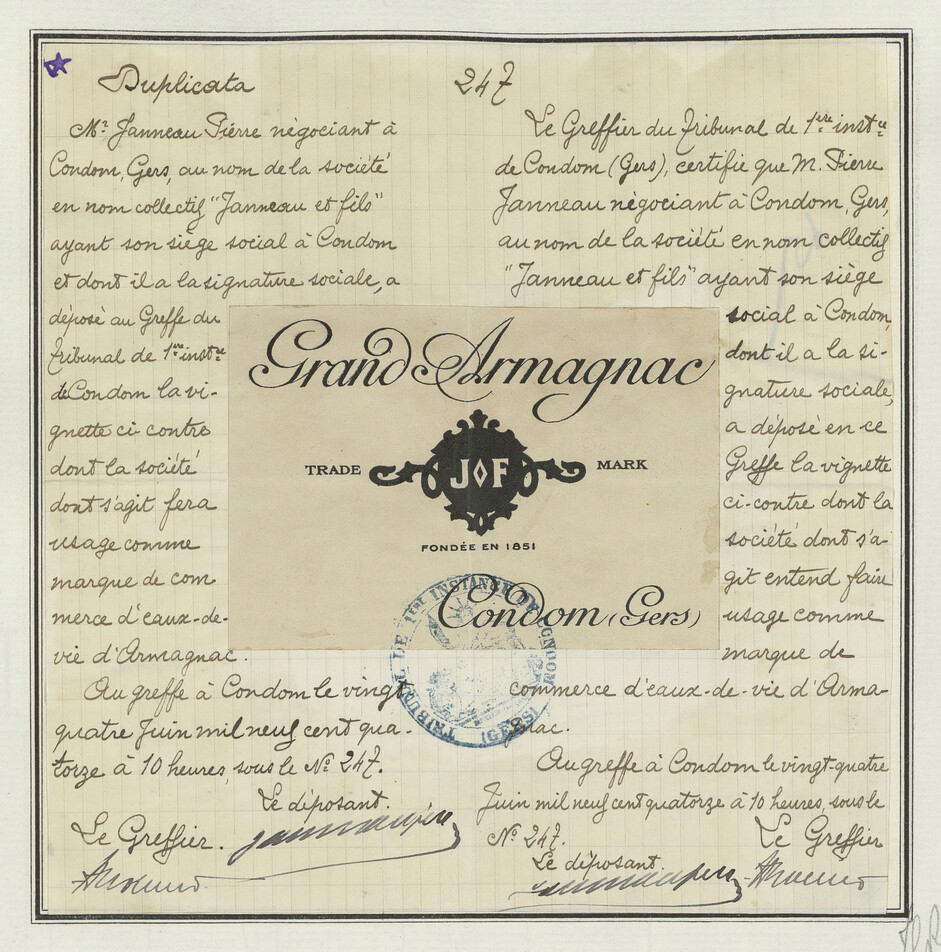 Duplicata
247
Mr. Janneau Pierre négociant à
Condom, Gers, au nom de la société
en nom collectif "Janneau et fils"
ayant son siège social à Condom
et dont il a la signature sociale, a
déposé au Greffe du
Tribunal de 1ère instce
de Condom la vi-
gnette ci-contre
dont la société
dont s'agit fera
usage comme
marque de com
merce d'eaux-de-
vie d'Armagnac.
Au greffe à Condom le vingt
quatre Juin mil neuf cent qua-
torze à 10 heures, sous le No. 247.
Le déposant.
Le Greffier.
Grand Armagnac
TRADE J F MARK
FONDÉE EN 1851
Condom (Gers)
TRIBUNAL DE 1ÈRE INSTANCE DE CONDOM
(GERS)
Le Greffier du Tribunal de 1ère instce
de Condom (Gers), certifie que M. Pierre
Janneau négociant à Condom, Gers,
au nom de la société en nom collectif
"Janneau et fils" ayant son siège
social à Condom,
dont il a la si-
gnature sociale,
a déposé en ce
Greffe la vignette
ci-contre dont la
société dont s'a-
git entend faire
usage comme
marque de
commerce d'eaux-de-vie d'Arma-
gnac.
Au greffe à Condom le vingt-quatre
Juin mil neuf cent quatorze à 10 heures, sous le
No. 247.
Le Greffier
Le déposant.